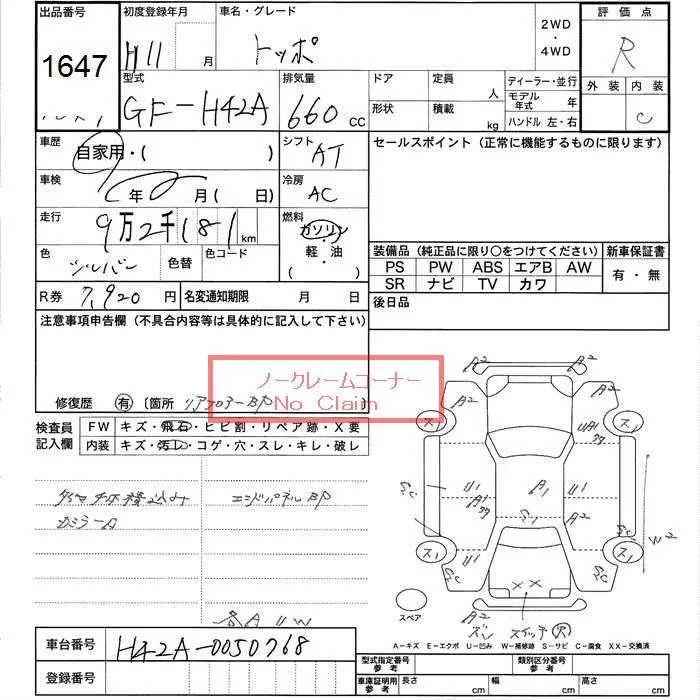 出品番号
1647
初度登録年月
H11 月
車名・グレード
トッポ
2WD
・
4WD
評価点
R
外装 内装
C
型式
GF-H42A
排気量
660 cc
ドア
定員
人
ディーラー・並行
モデル年式 年
形状
積載
kg
ハンドル 左・右
車歴
自家用・( )
シフト
AT
セールスポイント (正常に機能するものに限ります)
車検
年 月 ( 日)
冷房
AC
走行
9万2千181 km
燃料
ガソリン
・
軽・油
( )
色
シルバー
色替
色コード
装備品 (純正品に限り○をつけてください)
新車保証書
PS PW ABS エアB AW
SR ナビ TV カワ
有・無
R券 7,920 円
名変通知期限 月 日
後日品
注意事項申告欄 (不具合内容等は具体的に記入して下さい)
ノークレームコーナー
No Claim
修復歴 有 〔箇所 リアフロアーBP
検査員記入欄
FW キズ・飛石・ヒビ割・リペア跡・X要
内装 キズ・汚レ・コゲ・穴・スレ・キレ・破レ
タイヤ4本積込み
エンドパネルBP
ガミラーA
各AUW
A2 A2
A2 A2
ス1 ス1
U1
A1 U1
U1 A2
S1
W2
ス1 ス1
U1 U1
SC SC
XX
スペア
A2 A2
ズレ スイッチ穴
A-キズ E-エクボ U-凹み W-補修跡 S-サビ C-腐食 XX-交換済
車台番号 H42A-0050768
登録番号
型式指定番号参考
類別区分番号参考
車庫証明用参考 長さ cm 幅 cm 高さ cm